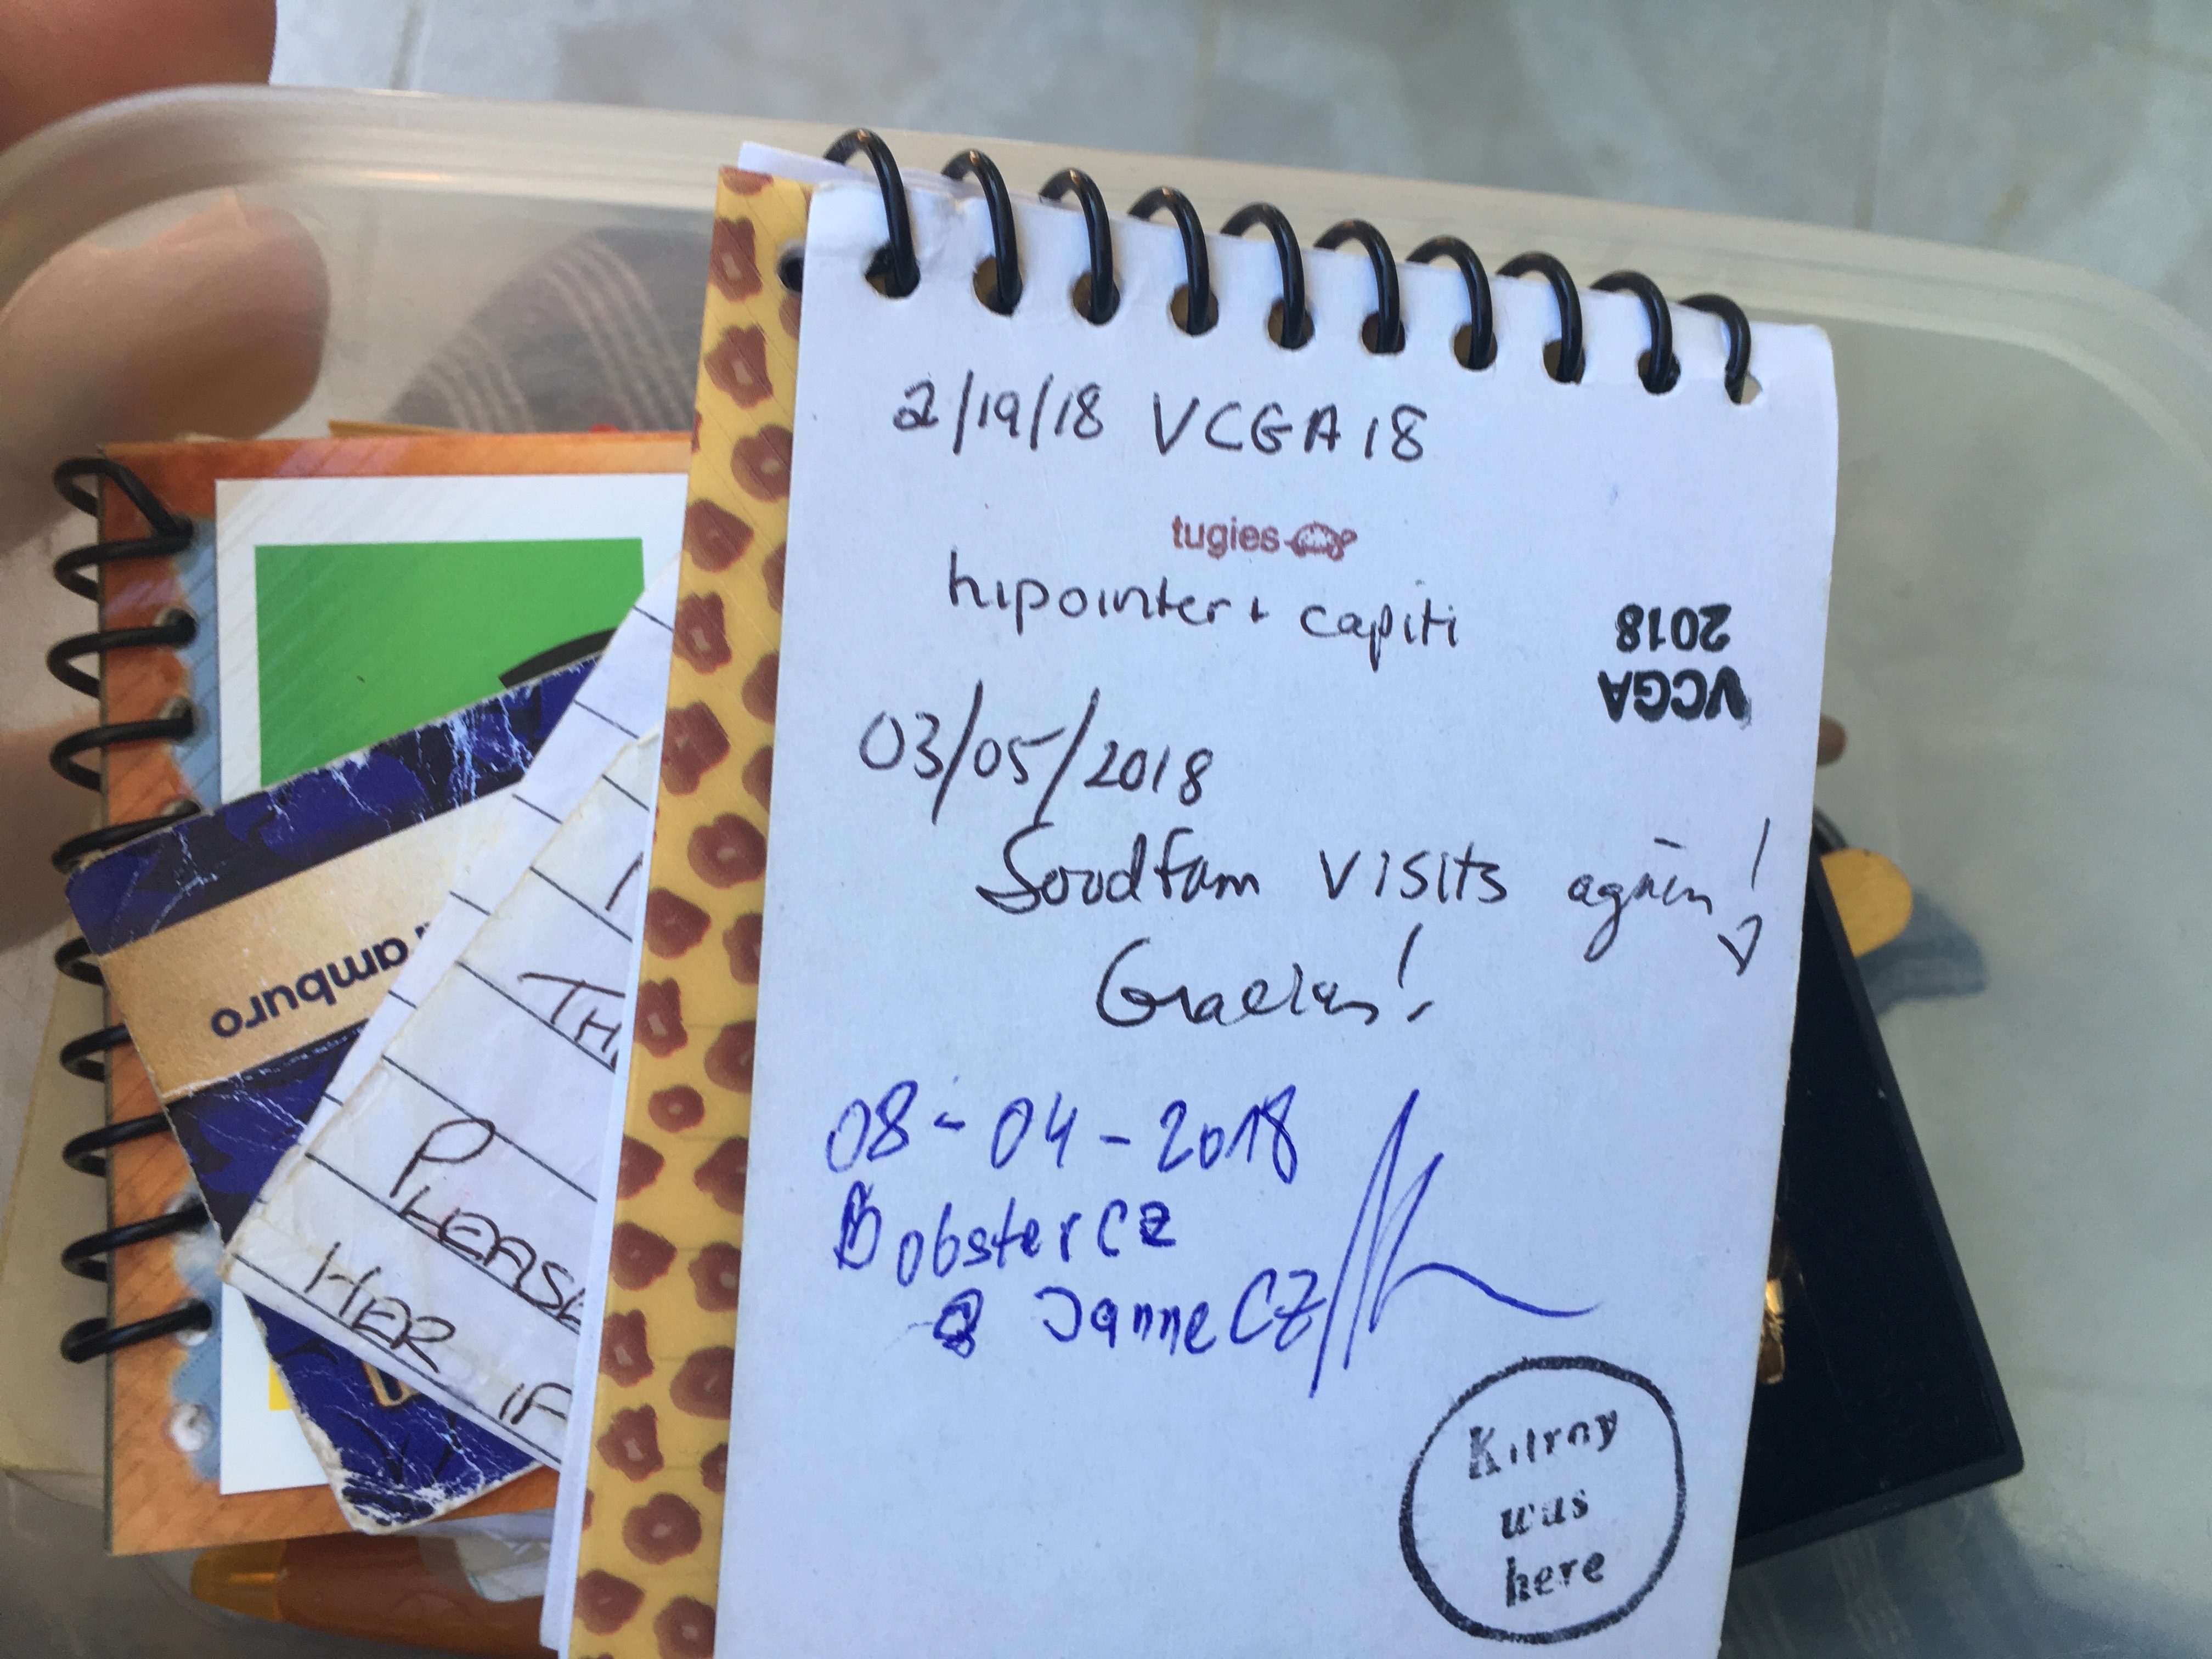 2/19/18 VCGA18
tugies
hipointer + capiti
VCGA
2018
03/05/2018
Soodfam visits again!
Gracias!
08-04-2018
BobsterCZ
& JanneCZ
Kilroy
was
here
amburo
TH
PLEASE
HER IF